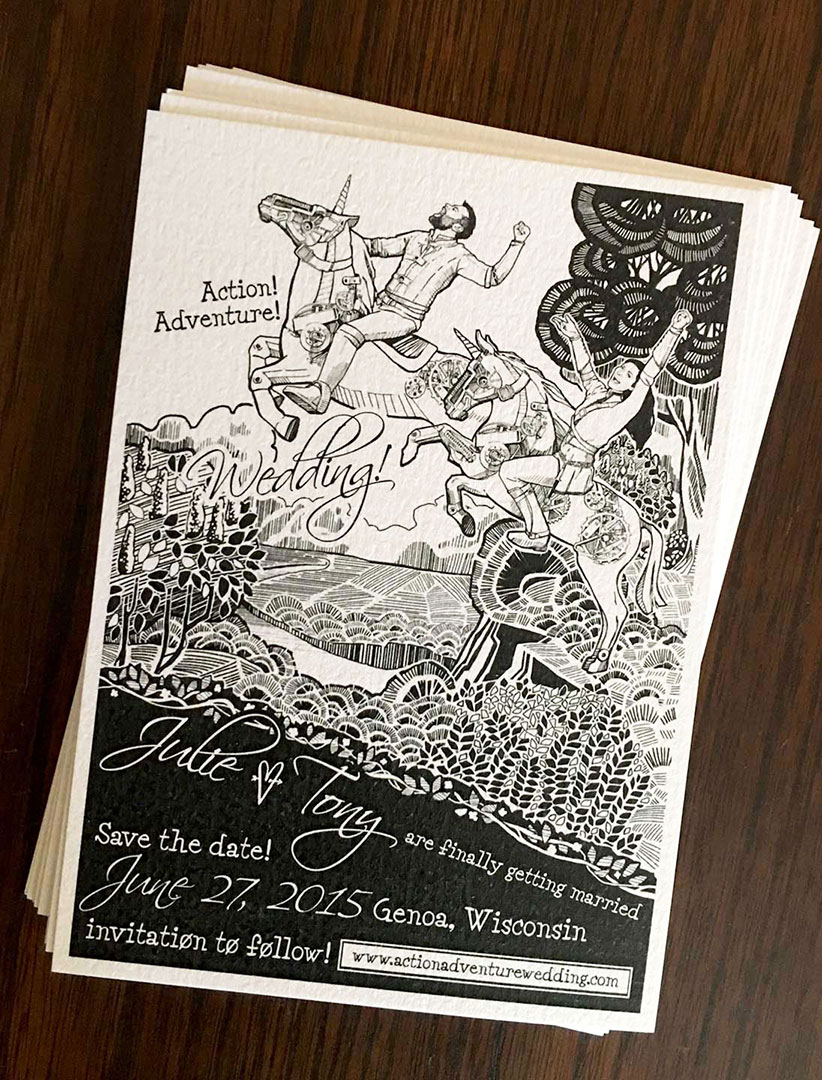 Action!
Adventure!
Wedding!
Julie & Tony
are finally getting married
Save the date!
June 27, 2015 Genoa, Wisconsin
invitatiøn tø følløw!
www.actionadventurewedding.com